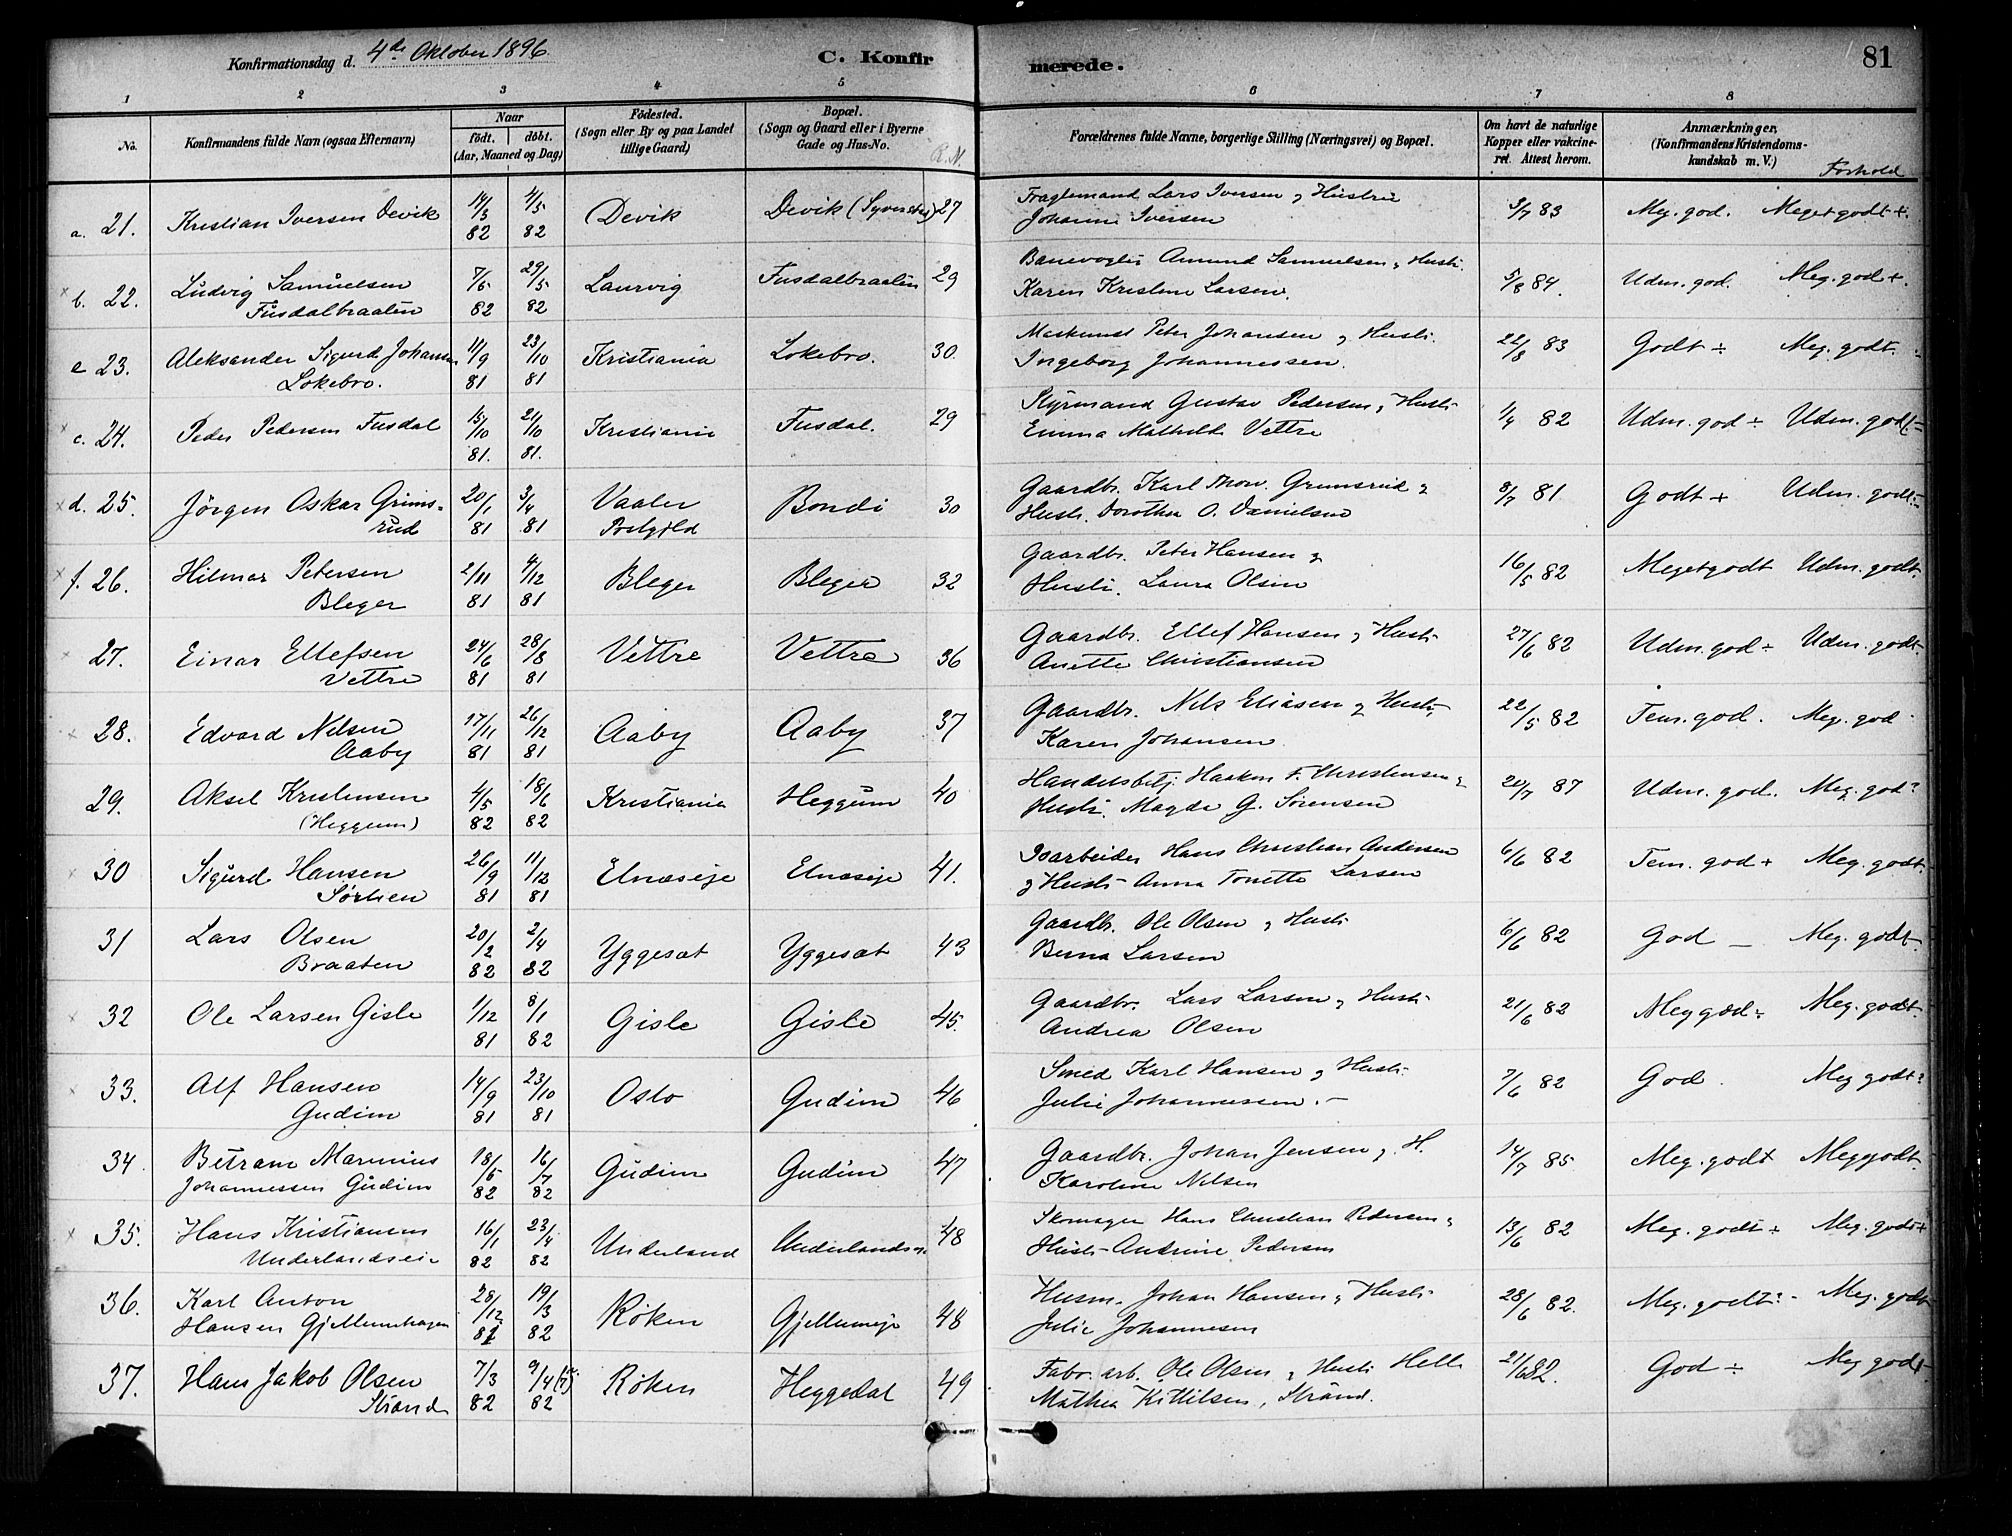 Konfirmationsdag d. 4de Oktober 1896. C. Konfirmerede. 81
1 2 3 4 5 6 7 8
No. Konfirmandens fulde Navn (ogsaa Efternavn) Naar født. døbt. (Aar, Maaned og Dag) Fødested. (Sogn eller By og paa Landet tillige Gaard) Bopæl. (Sogn og Gaard eller i Byerne Gade og Hus-No. R.N. Forældrenes fulde Navne, borgerlige Stilling (Næringsvei) og Bopæl. Om havt de naturlige Kopper eller vakcineret. Attest herom. Anmærkninger, (Konfirmandens Kristendomskundskab m. V.) Forhold
a. 21. Kristian Iversen Devik 14/3 82 4/5 82 Devik Devik 27 Lars Iversen & Hustru Johanne Iversen 3/7 83 Meg. god. Megetgodt +.
x b. 22. Ludvig Samuelsen Fusdalbraaten 7/5 82 29/5 82 Laurvig Fusdalbraaten 29 Banevogter Amund Samuelsen & Hustr. Karen Kristine Larsen. 5/8 84. Udm. god. Meg. god +.
e 23. Aleksander Sigurd Johansen Lokebro. 11/9 81 23/10 81 Kristiania Lokebro. 30. Maskinist Peter Johansen & Hustr. Ingeborg Johannessen. 22/8 83 Godt ÷ Meg. godt.
x c. 24. Peder Pedersen Fusdal 15/10 81. 21/10 81. Kristiania Fusdal. 29 Styrmand Gustav Pedersen & Hustr. Emma Mathilde Vettre 1/4 82 Udm. god ÷ Udm. godt ÷
x d. 25. Jörgen Oskar Grimsrud 20/1 81 3/4 81 Vaaler Prstgjld Bondi 30 Gaardbr. Karl Thorv. Grimsrud & Hustr. Dorothea O. Danielsen 8/7 81 Godt + Udm. godt ÷
x f. 26. Hilmar Petersen Bleger 2/11 81 4/12 81 Bleger Bleger 32 Gaardbr. Peter Hansen & Hustr. Laura Olsen 16/5 82 Megetgodt Udm. godt.
x 27. Einar Ellefsen Vettre 24/6 81 28/8 81 Vettre Vettre 36 Gaardbr. Ellef Hansen & Hustr. Anette Christiansen 27/6 82 Udm. god ÷ Udm. godt.
x 28. Edvard Nilsen Aaby 17/11 81 26/12 81 Aaby Aaby 37 Gaardbr. Nils Eliasen & Hustr. Karen Johansen. 22/5 82 Tem. god. Meg. god
29. Aksel Kristensen (Heggum) 4/5 82 18/6 82 Kristiania Heggum 40 Handelsbetj. Haakon F. Christensen & Hustr. Magda G. Sörensen 20/7 87 Udm. god. Meg. god?
x 30 Sigurd Hansen 26/9 81 11/12 81 Elnæseje Elnæseje 41. Isarbeider Hans Christian Andersen & Hustr. Anna Tonette Larsen 6/6 82 Tem. god + Meg. godt.
31 Lars Olsen Braaten 20/2 82 2/4 82 Yggeset Yggeset 43 Gaardbr. Ole Olsen & Hustr. Larsen 6/6 82 God — Meg. godt.
x 32 Ole Larsen Gisle 1/12 81 8/1 82 Gisle Gisle 45. Gaardbr. Lars Larsen & Hustr. Andrea Olsen 21/6 82 Meg god ÷ Meg. godt
x 33. Alf Hansen Gudim 14/9 81 23/10 81 Oslo Gudim 46 Smed Karl Hansen & Hustr. Julie Johannessen. — 7/6 82 God. Meg godt?
34 Betram Marinius Johannessen Gudim 18/5 82 16/7 82 Gudim Gudim 47 Gaardbr. Johan Jensen & H. Karoline Nilsen 14/7 85. Meg. godt Meggodt.
x 35. Hans Kristiansen Underlandseie 16/1 82 23/4 82 Underland Underlands. 48 Skomager Hans Christian Pedersen & Hustr. Andrine Pedersen 13/6 82 Meg. godt ÷ Meg. godt +
36. Karl Anton Hansen Gjellumhagen 28/12 81 19/3 82 Röken Gjellumeje 48 Husm. Johan Hansen & Hustr. Julie Johannesen 28/6 82. Meg. godt? - Meg. godt
37. Hans Jakob Olsen Strand 7/3 82 9/4 (?) 82 Röken Heggedal 49 Fabr. arb. Ole Olsen & Hustr. Helle Mathea Kittilsen, Strand. 21/6 82. God ÷ Meg godt